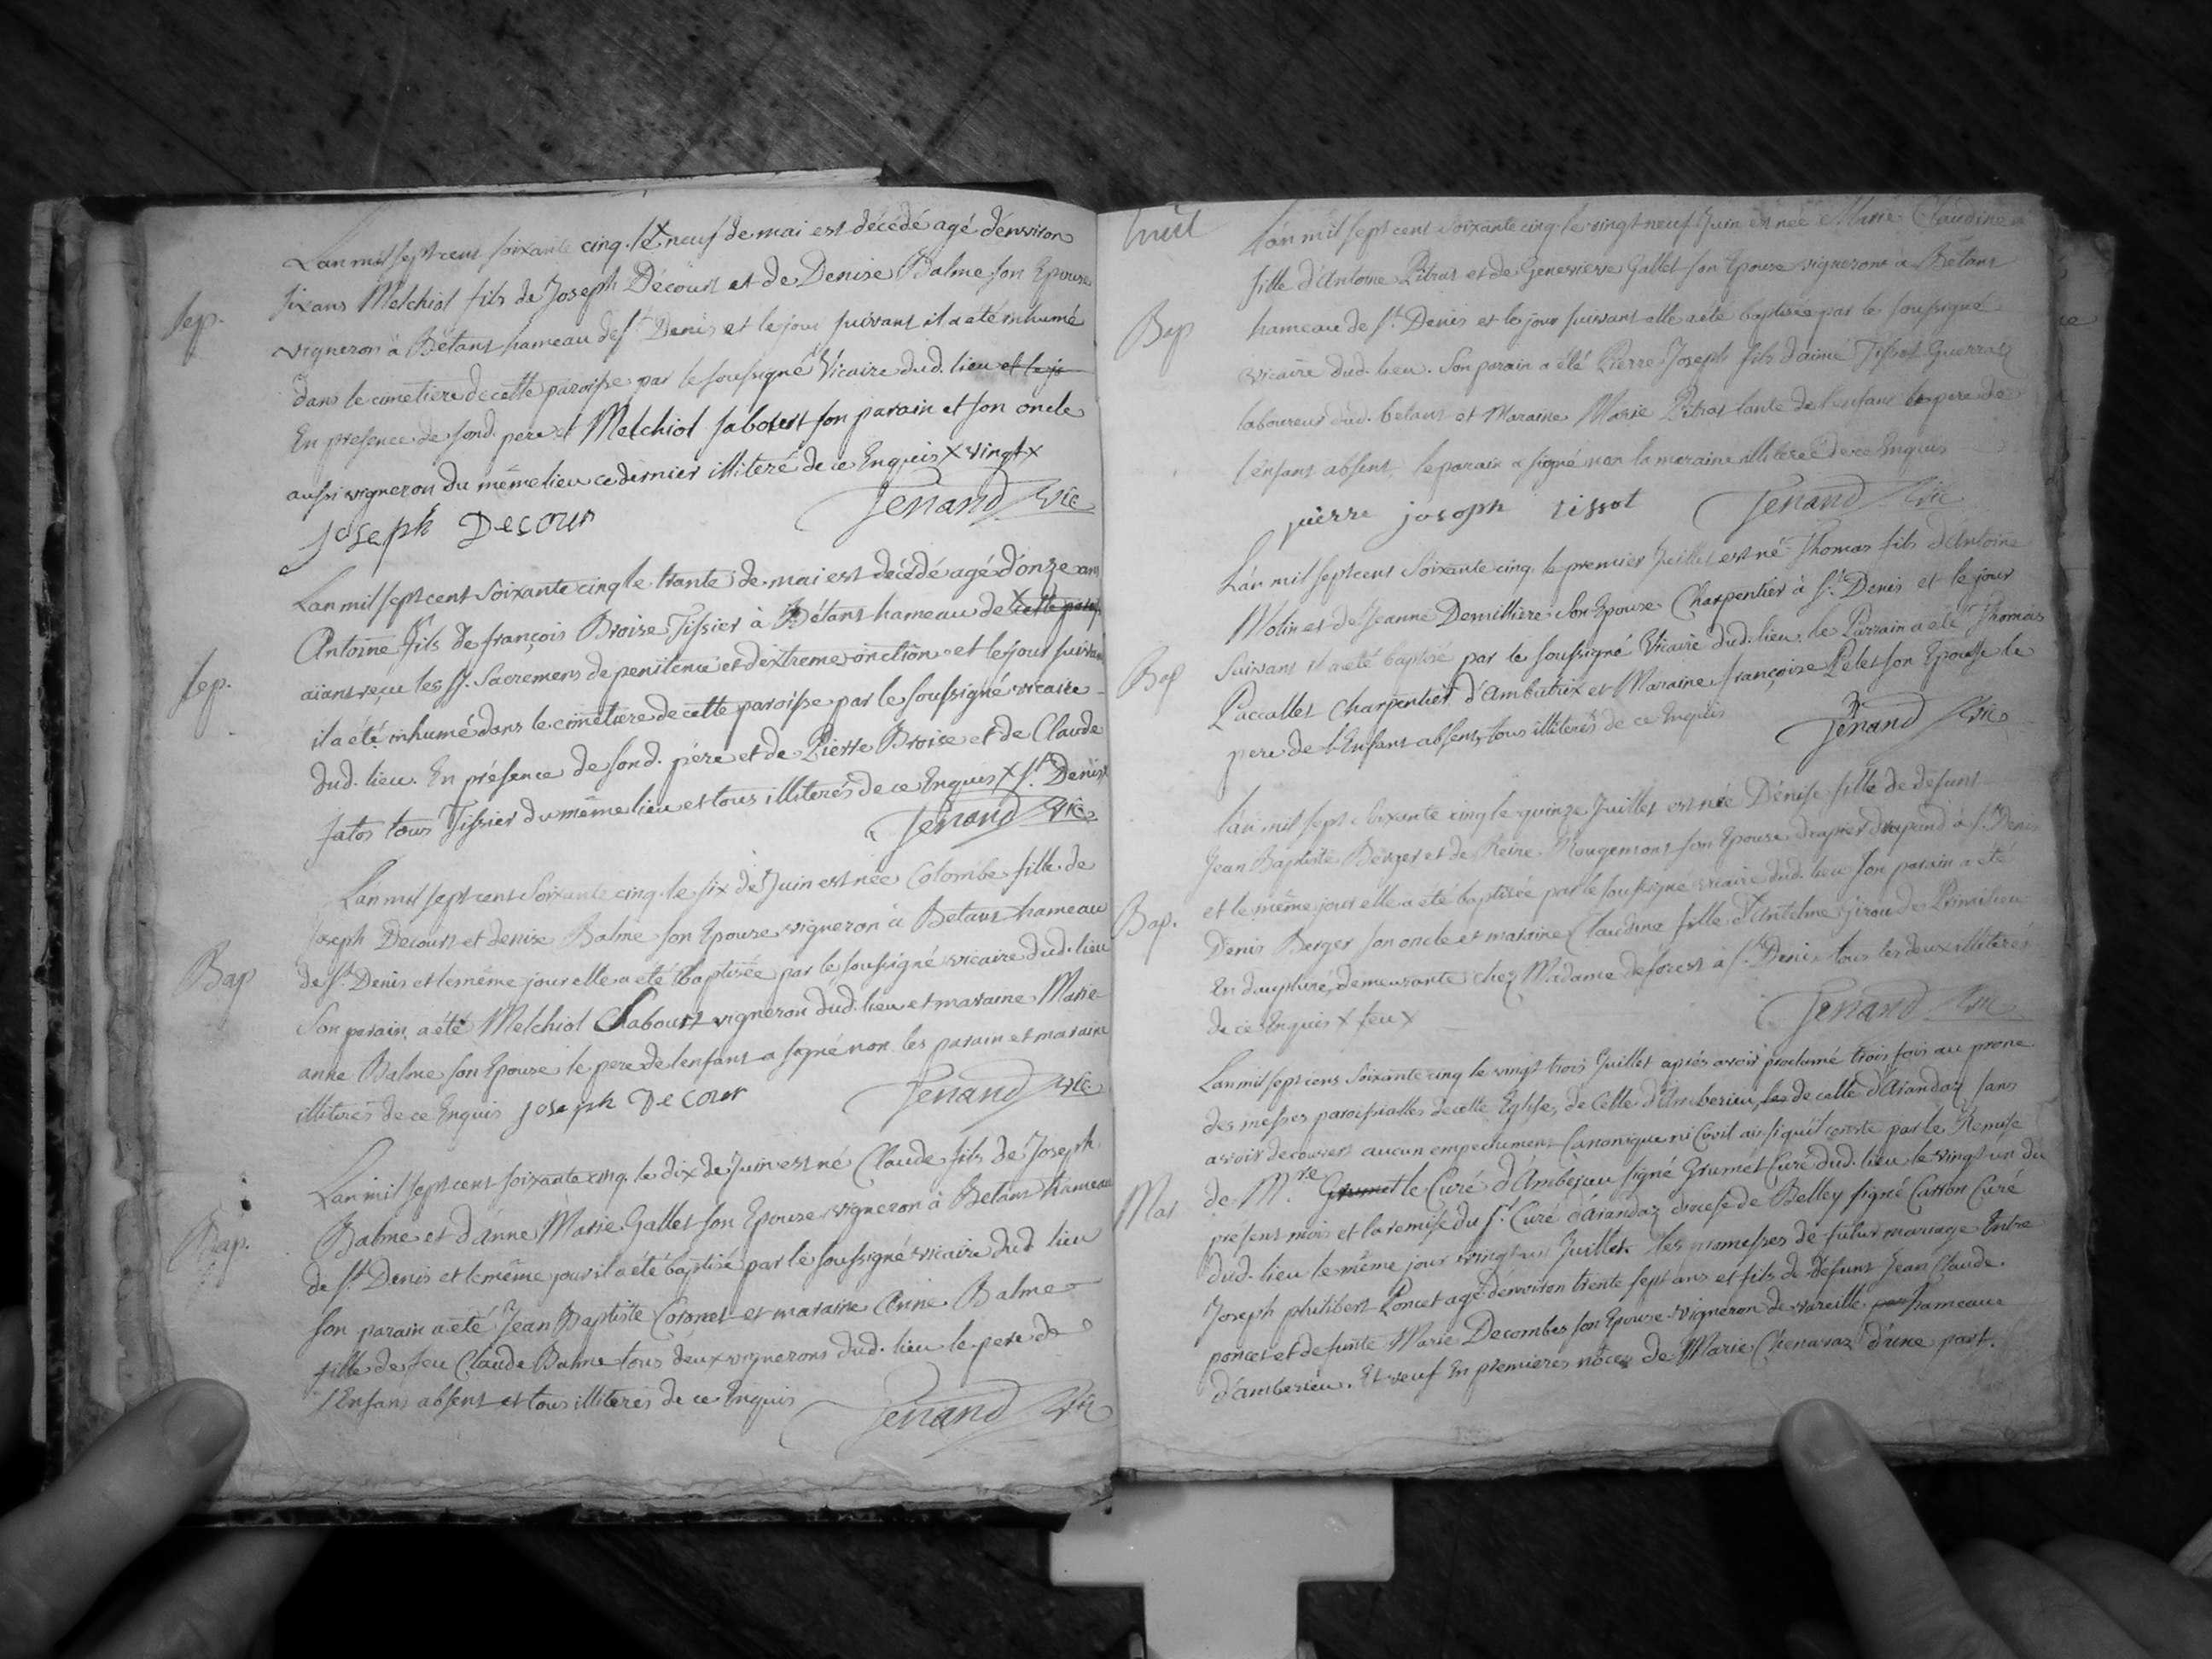 Sep.
L'an mil sept cent soixante cinq le x neuf de mai est décédé agé d'environ
six ans Melchiol fils de Joseph Décourt et de Denise Balme son Epouse
vigneron à Bétant hameau de St Denis et le jour suivant il a été inhumé
dans le cimetiere de cette paroisse par le soussigné Vicaire dud. lieu et le jo
En presence de sond. pere et Melchiol Sabourt son parain et son oncle
aussi vigneron du même lieu ce dernier illiteré de ce Enquis x vingt x
Joseph Decour Jenand Vic
Sep.
L'an mil sept cent Soixante cinq le trante de mai est décédé agé d'onze ans
Antoine fils de françois Broise Tissier à Bétant hameau de x cette parois
aiant reçu les St. Sacremens de penitence et d'extreme onction et le jour suivant
il a été inhumé dans le cimetiere de cette paroisse par le soussigné vicaire
dud. lieu. En présence de sond. pére et de Pierre Broise et de Claude
Jatos tous Tissier du même lieu et tous illiterés de ce Enquis x St. Denis x
Jenand Vic
Bap
L'an mil sept cent Soixante cinq le six de Juin est née Colombe fille de
Joseph Decourt et denise Balme son Epouse vigneron à Betant hameau
de St Denis et le même jour elle a été baptisée par le soussigné vicaire dud. lieu
Son parain a été Melchiol Sabourt vigneron dud. lieu et maraine Marie
anne Balme son Epouse le pere de l'enfant a signé non les parain et maraine
illiterés de ce Enquis Joseph Decour Jenand Vic
Bap.
L'an mil sept cent soixante cinq le dix de Juin est né Claude fils de Joseph
Balme et d'Anne Marie Gallet son Epouse vigneron à Betant hameau
de St Denis et le même jour il a été baptisé par le soussigné vicaire dud. lieu
son parain a été Jean Baptiste Coronet et maraine Anne Balme
fille de feu Claude Balme tous deux vignerons dud. lieu le pere de
l'Enfant absent et tous illiterés de ce Enquis Jenand Vic
huit
Bap
L'an mil sept cent Soixante cinq le vingt neuf Juin est née Marie Claudine
fille d'Antoine Pitrat et de Genevieve Gallet son Epouse vignerons à Bétant
hameau de St. Denis et le jour suivant elle a été baptisée par le soussigné
vicaire dud. lieu. Son parain a été Pierre Joseph fils d'aimé Tissot Guerraz
laboureur dud. betant et Maraine Marie Pitrat tante de l'enfant le pere de
l'enfant absent, le parain a signé non la maraine illiterée de ce Enquis
pierre joseph tissot Jenand Vic
Bap
L'an mil sept cent Soixante cinq le premier Juillet est né Thomas fils d'Antoine
Molin et de Jeanne Demilliere son Epouse Charpentier à St. Denis et le jour
Suivant il a été baptisé par le soussigné Vicaire dud. lieu. le Parrain a été Sr Thomas
Paccallet Charpentier d'Ambutrix et Maraine françoise Pelet son Epouse le
pere de l'Enfant absent, tous illiterés de ce Enquis
Jenand Vic
Bap.
L'an mil sept Soixante cinq le quinze Juillet est née Dénise fille de défunt
Jean Baptiste Berger et de Reine Rougemont son Epouse à St. Denis
et le même jour elle a été baptisée par le soussigné vicaire dud. lieu son parain a été
Denis Berger son oncle et maraine Claudine fille d'Antelme Giroud de Primilieu
En dauphiné, demeurante chez Madame deforest à St. Denis tous les deux illiterés
de ce Enquis x feu x Jenand Vic
Mar
L'an mil sept cens Soixante cinq le vingt trois Juillet aprés avoir proclamé trois fois au prone
des messes paroissialles de cette Eglise, de Celle d'Amberieu, de celle d'Arandaz sans
avoir decouvert aucun empechement Canonique ni Civil ainsi qu'il conste par le Remise
de Mre. Grumet le Curé d'Amberieu signé Grumet Curé dud. lieu le vingt un du
présent mois et la remise du Sr. Curé d'Arandaz diocese de Belley signé Carron Curé
dud. lieu le même jour vingt un Juillet les promesses de futur mariage Entre
Joseph philibert Poncet agé d'environ trente sept ans et fils de défunt Jean Claude
poncet et defunte Marie Decombes son Epouse vigneron de vareille hameau
d'amberieu. Et veuf En premieres nôces de Marie Chenavaz d'une part.